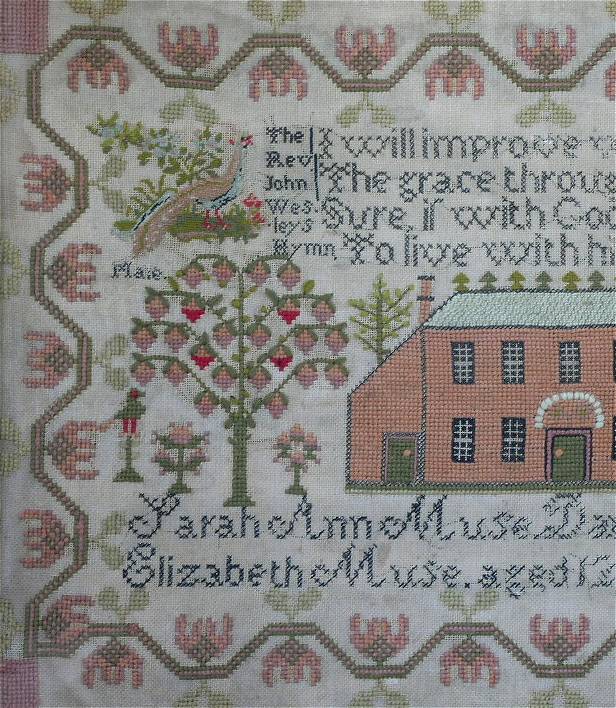 The
Rev
John
Wes.
leys
Hymn.
I will improve
The grace
Sure, if with
To live with
Male.
Sarah Ann Muse
Elizabeth Muse. aged